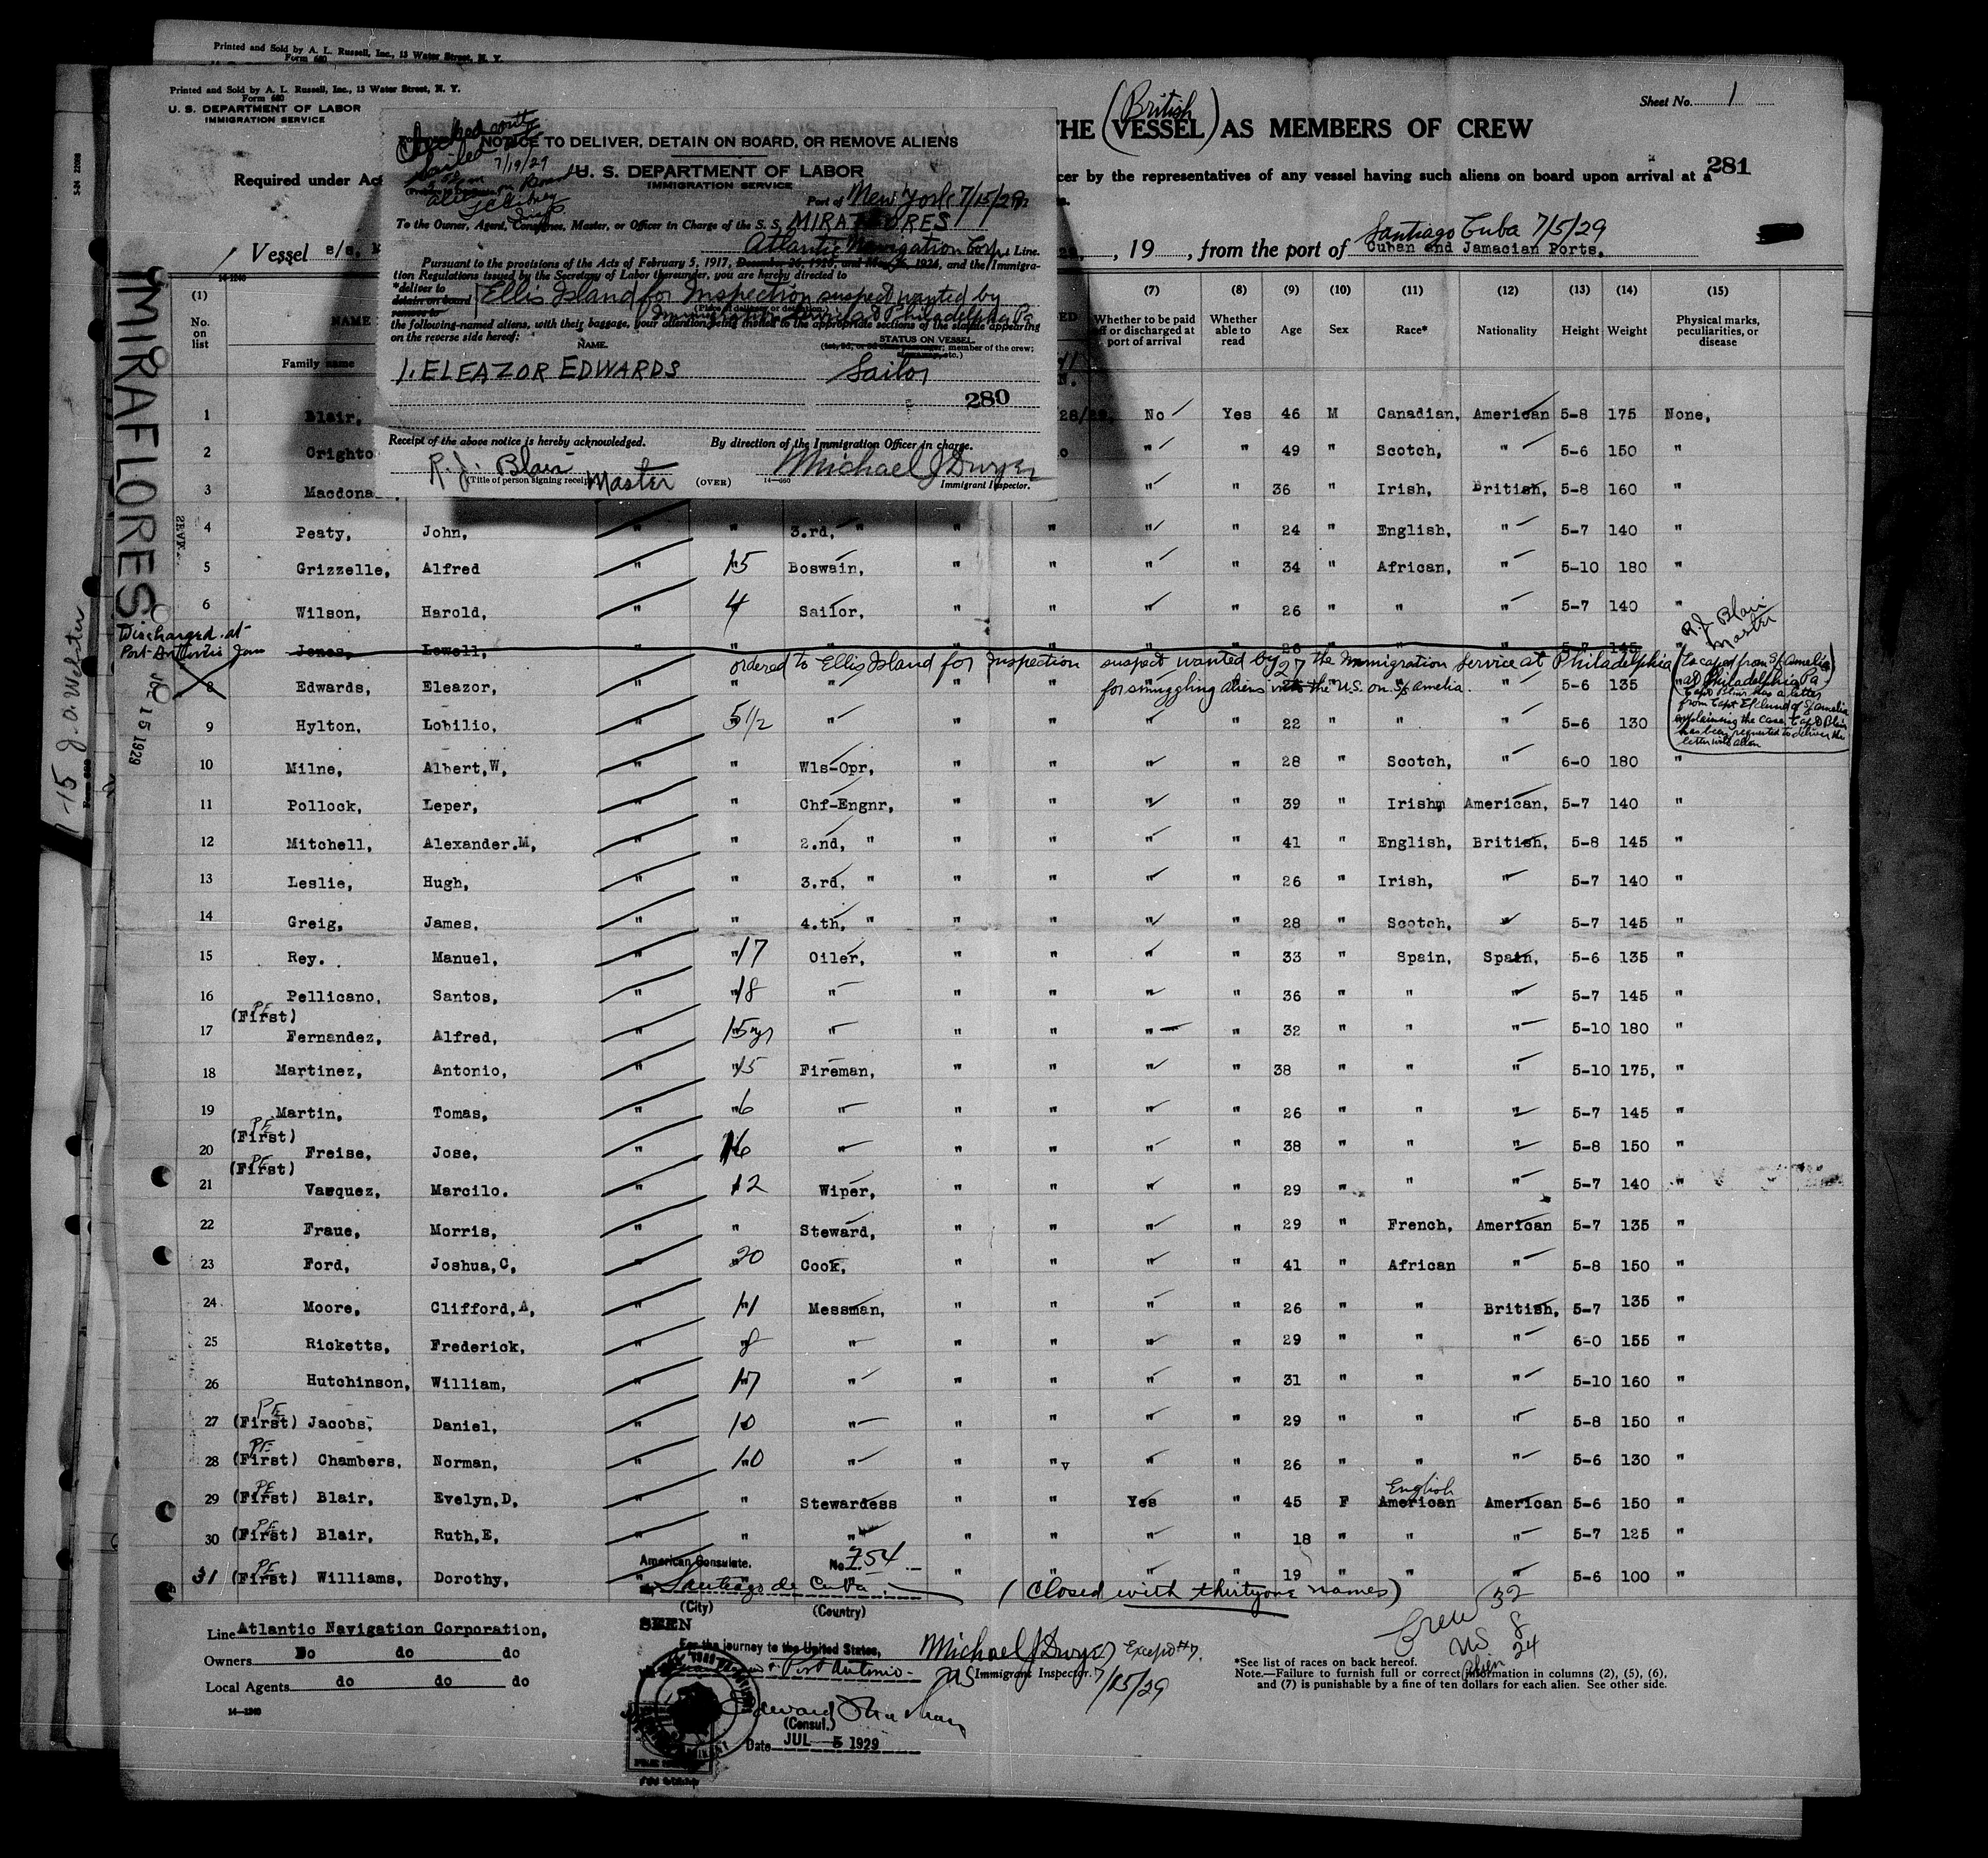 Printed and Sold by A. L. Russell, Inc., 13 Water Street, N. Y.
Form 680
Printed and Sold by A. L. Russell, Inc., 13 Water Street, N. Y.
Form 680
U. S. DEPARTMENT OF LABOR
IMMIGRATION SERVICE
Sheet No. 1
(British)
THE (VESSEL) AS MEMBERS OF CREW
281
Required under Act
cer by the representatives of any vessel having such aliens on board upon arrival at a
Vessel s/s. M
19 , from the port of Santiago Cuba 7/5/29
Cuban and Jamacian Ports.
Checked
Sailed
7/19/29
NOTICE TO DELIVER, DETAIN ON BOARD, OR REMOVE ALIENS
U. S. DEPARTMENT OF LABOR
IMMIGRATION SERVICE
Port of New York 7/15/29
To the Owner, Agent, Consignee, Master, or Officer in Charge of the S. S. MIRAFLORES
Atlantic Navigation Corp. Line.
Pursuant to the provisions of the Acts of February 5, 1917, December 26, 1920, and May 26, 1924, and the Immigra-
tion Regulations issued by the Secretary of Labor thereunder, you are hereby directed to
*deliver to
detain on board
remove to
Ellis Island for Inspection suspect wanted by
Immigration Service at Philadelphia Pa
(Place of delivery or detention.)
the following-named aliens, with their baggage, your attention being invited to the appropriate sections of the statute appearing
on the reverse side hereof:
NAME.
STATUS ON VESSEL.
(1st, 2d, or 3d class passenger; member of the crew;
stowaway, etc.)
1. ELEAZOR EDWARDS Sailor
280
Receipt of the above notice is hereby acknowledged. By direction of the Immigration Officer in charge.
R. J. Blair Master Michael J Dwyer
(Title of person signing receipt) (OVER) 14—660 Immigrant Inspector.
MIRAFLORES
JUL 15 1929
J. O. Webster
(1) No. on list
NAME
Family name
(7) Whether to be paid off or discharged at port of arrival
(8) Whether able to read
(9) Age
(10) Sex
(11) Race*
(12) Nationality
(13) Height
(14) Weight
(15) Physical marks, peculiarities, or disease
1 Blair, 28/ No Yes 46 M Canadian, American 5-8 175 None,
2 Crighto " " 49 " Scotch, " 5-6 150 "
3 Macdona " " 36 " Irish, British, 5-8 160 "
4 Peaty, John, " " 3.rd, " " " " " 24 " English, " 5-7 140 "
5 Grizzelle, Alfred " 15 Boswain, " " " " 34 " African, " 5-10 180 "
6 Wilson, Harold, " 4 Sailor, " " " " 26 " " " 5-7 140 "
Discharged at
Port Antonio Jam
Jones, Lowell, " " " " " " " 26 " " " 5-7 145 "
R. J. Blair
Master
ordered to Ellis Island for Inspection suspect wanted by the Immigration Service at Philadelphia
for smuggling aliens into the U.S. on S/S Amelia.
8 Edwards, Eleazor, " " " " " 27 " " 5-6 135 "
(Escaped from S/S Amelia
at Philadelphia Pa.
Capt Blair has a letter
from Capt Eklund of S/S Amelia
explaining the case. Capt Blair
has been requested to deliver the
letter with alien
9 Hylton, Lobilio, " 5 1/2 " " " " " 22 " " " 5-6 130
10 Milne, Albert,W, " " Wls-Opr, " " " " 28 " Scotch, " 6-0 180 "
11 Pollock, Leper, " " Chf-Engnr, " " " " 39 " Irishm American, 5-7 140 "
12 Mitchell, Alexander.M, " " 2.nd, " " " " " 41 " English, British, 5-8 145 "
13 Leslie, Hugh, " " 3.rd, " " " " " 26 " Irish, " 5-7 140 "
14 Greig, James, " " 4.th, " " " " " 28 " Scotch, " 5-7 145 "
15 Rey. Manuel, " 17 Oiler, " " " " 33 " Spain, Spain, 5-6 135 "
16 Pellicano, Santos, " 18 " " " " " 36 " " " 5-7 145 "
PE
(First)
17 Fernandez, Alfred, " 15 yrs " " " " " 32 " " " 5-10 180 "
18 Martinez, Antonio, " 15 Fireman, " " " " 38 " " " 5-10 175, "
19 Martin, Tomas, " 6 " " " " " 26 " " " 5-7 145 "
PE
(First)
20 Freise, Jose, " 16 " " " " " 38 " " " 5-8 150 "
PE
(First)
21 Vasquez, Marcilo. " 12 Wiper, " " " " 29 " " " 5-7 140 "
22 Fraue, Morris, " " Steward, " " " " 29 " French, American 5-7 135 "
23 Ford, Joshua,C, " 20 Cook, " " " " 41 " African " 5-8 150 "
24 Moore, Clifford,A, " 11 Messman, " " " " 26 " " British, 5-7 135 "
25 Ricketts, Frederick, " 8 " " " " " 29 " " " 6-0 155 "
26 Hutchinson, William, " 17 " " " " " 31 " " " 5-10 160 "
PE
27 (First) Jacobs, Daniel, " 10 " " " " " 29 " " " 5-8 150 "
PE
28 (First) Chambers, Norman, " 10 " " " " " 26 " " " 5-6 130 "
PE English
29 (First) Blair, Evelyn,D, " " Stewardess " " Yes " 45 F American American 5-6 150 "
PE
30 (First) Blair, Ruth,E, " " " " " " " 18 " " " 5-7 125 "
PE
31 (First) Williams, Dorothy, " " " " " 19 " " " 5-6 100 "
American Consulate. No. 754
Santiago de Cuba
(City) (Country)
(Closed with thirtyone names)
SEEN
For the journey to the United States,
Port Antonio
Line Atlantic Navigation Corporation,
Owners Do do do
Local Agents do do do
14—1240
Michael J Dwyer Except #7.
Immigrant Inspector. 7/15/29
(Consul.)
Date JUL 5 1929
Crew 32
US 8
Alien 24
*See list of races on back hereof.
Note.—Failure to furnish full or correct information in columns (2), (5), (6),
and (7) is punishable by a fine of ten dollars for each alien. See other side.